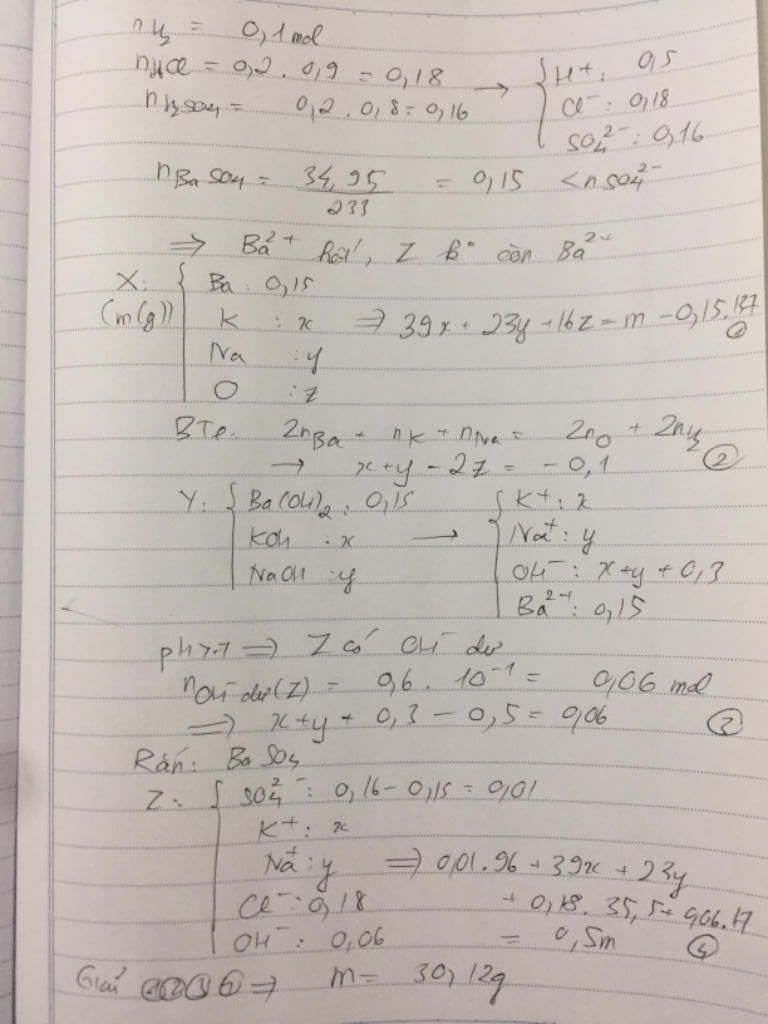 nH2 = 0,1 mol
nHCl = 0,2 . 0,9 = 0,18 → { H+ : 0,5
nH2SO4 = 0,2 . 0,8 = 0,16 Cl- : 0,18
SO4 2- : 0,16
nBaSO4 = 34,95/233 = 0,15 < nSO4 2-
⇒ Ba2+ hết, Z ko còn Ba2+
X: { Ba : 0,15
(m(g)) K : x ⇒ 39x + 23y + 16z = m - 0,15.137 ①
Na : y
O : z
BTe. 2nBa + nK + nNa = 2nO + 2nH2
→ x+y - 2z = -0,1 ②
Y: { Ba(OH)2 : 0,15 → { K+ : x
KOH : x Na+ : y
NaOH : y OH- : x+y+0,3
Ba2+ : 0,15
pH>7 ⇒ Z có OH- dư
nOH- dư(Z) = 0,6 . 10^-1 = 0,06 mol
⇒ x+y + 0,3 - 0,5 = 0,06 ③
Rắn: BaSO4
Z: { SO4 2- : 0,16 - 0,15 = 0,01
K+ : x
Na+ : y ⇒ 0,01.96 + 39x + 23y
Cl- : 0,18 + 0,18. 35,5 + 0,06.17
OH- : 0,06 = 0,5m ④
Giải ①②③④ ⇒ m = 30,12g